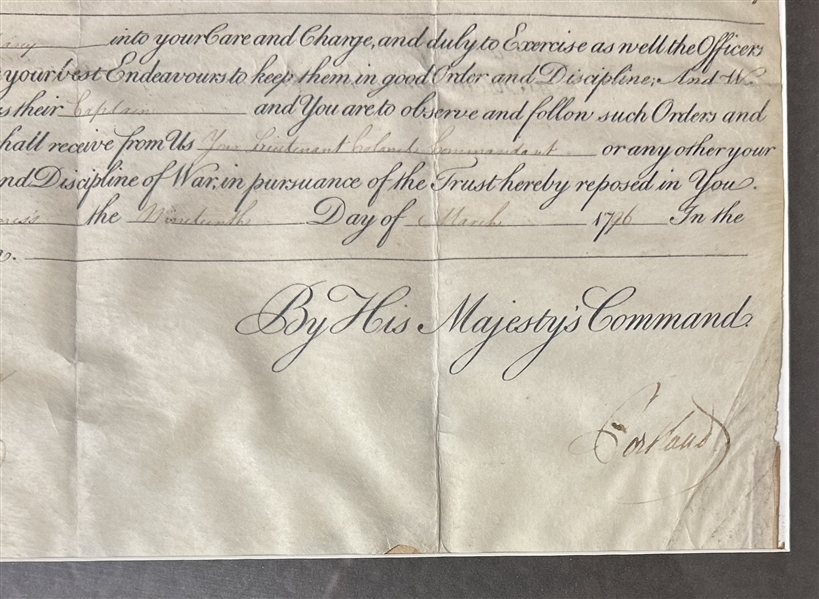 into your Care and Charge, and duly to Exercise as well the Officers
your best Endeavours to keep them in good Order and Discipline; And W.
their Captain and You are to observe and follow such Orders and
hall receive from Us Your Lieutenant Colonel Commandant or any other your
nd Discipline of War; in pursuance of the Trust hereby reposed in You.
the Nineteenth Day of March 1796 In the
By His Majesty's Command.
Portland